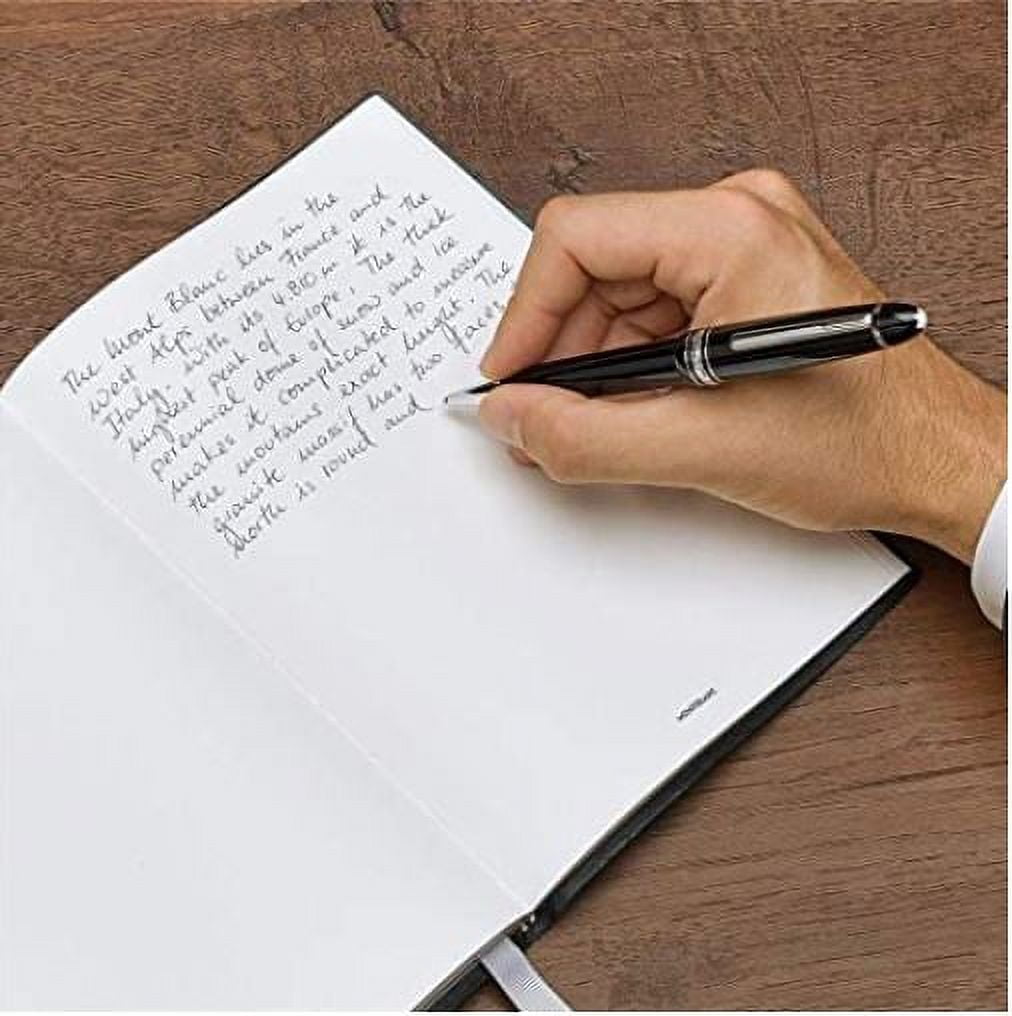 The Mont Blanc lies in the
West Alps between France and
Italy. with its 4.810 m it is the
highest peak of Europe. The thick
perennial dome of snow and ice
makes it complicated to measure
the mountains exact height. The
granite massif has two faces.
North is round and